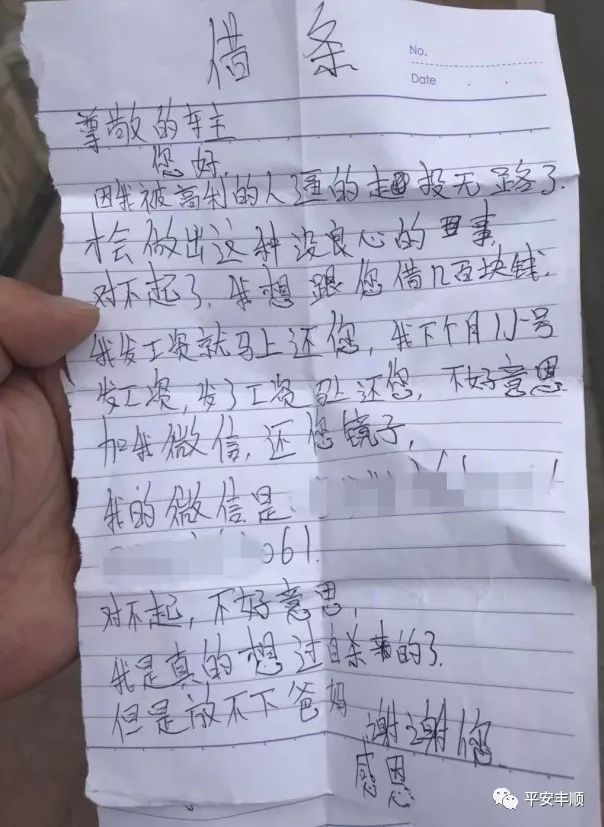 借条
No.
Date
尊敬的车主
您好.
因我被高利的人逼的走投无路了.
才会做出这种没良心的事,
对不起了.我想跟您借几百块钱.
我发工资就马上还您,我下个月15号
发工资,发了工资马上还您,不好意思
加我微信,还您镜子,
我的微信是:
061.
对不起,不好意思,
我是真的想过自杀的了.
但是放不下爸妈
谢谢您
感恩
平安丰顺